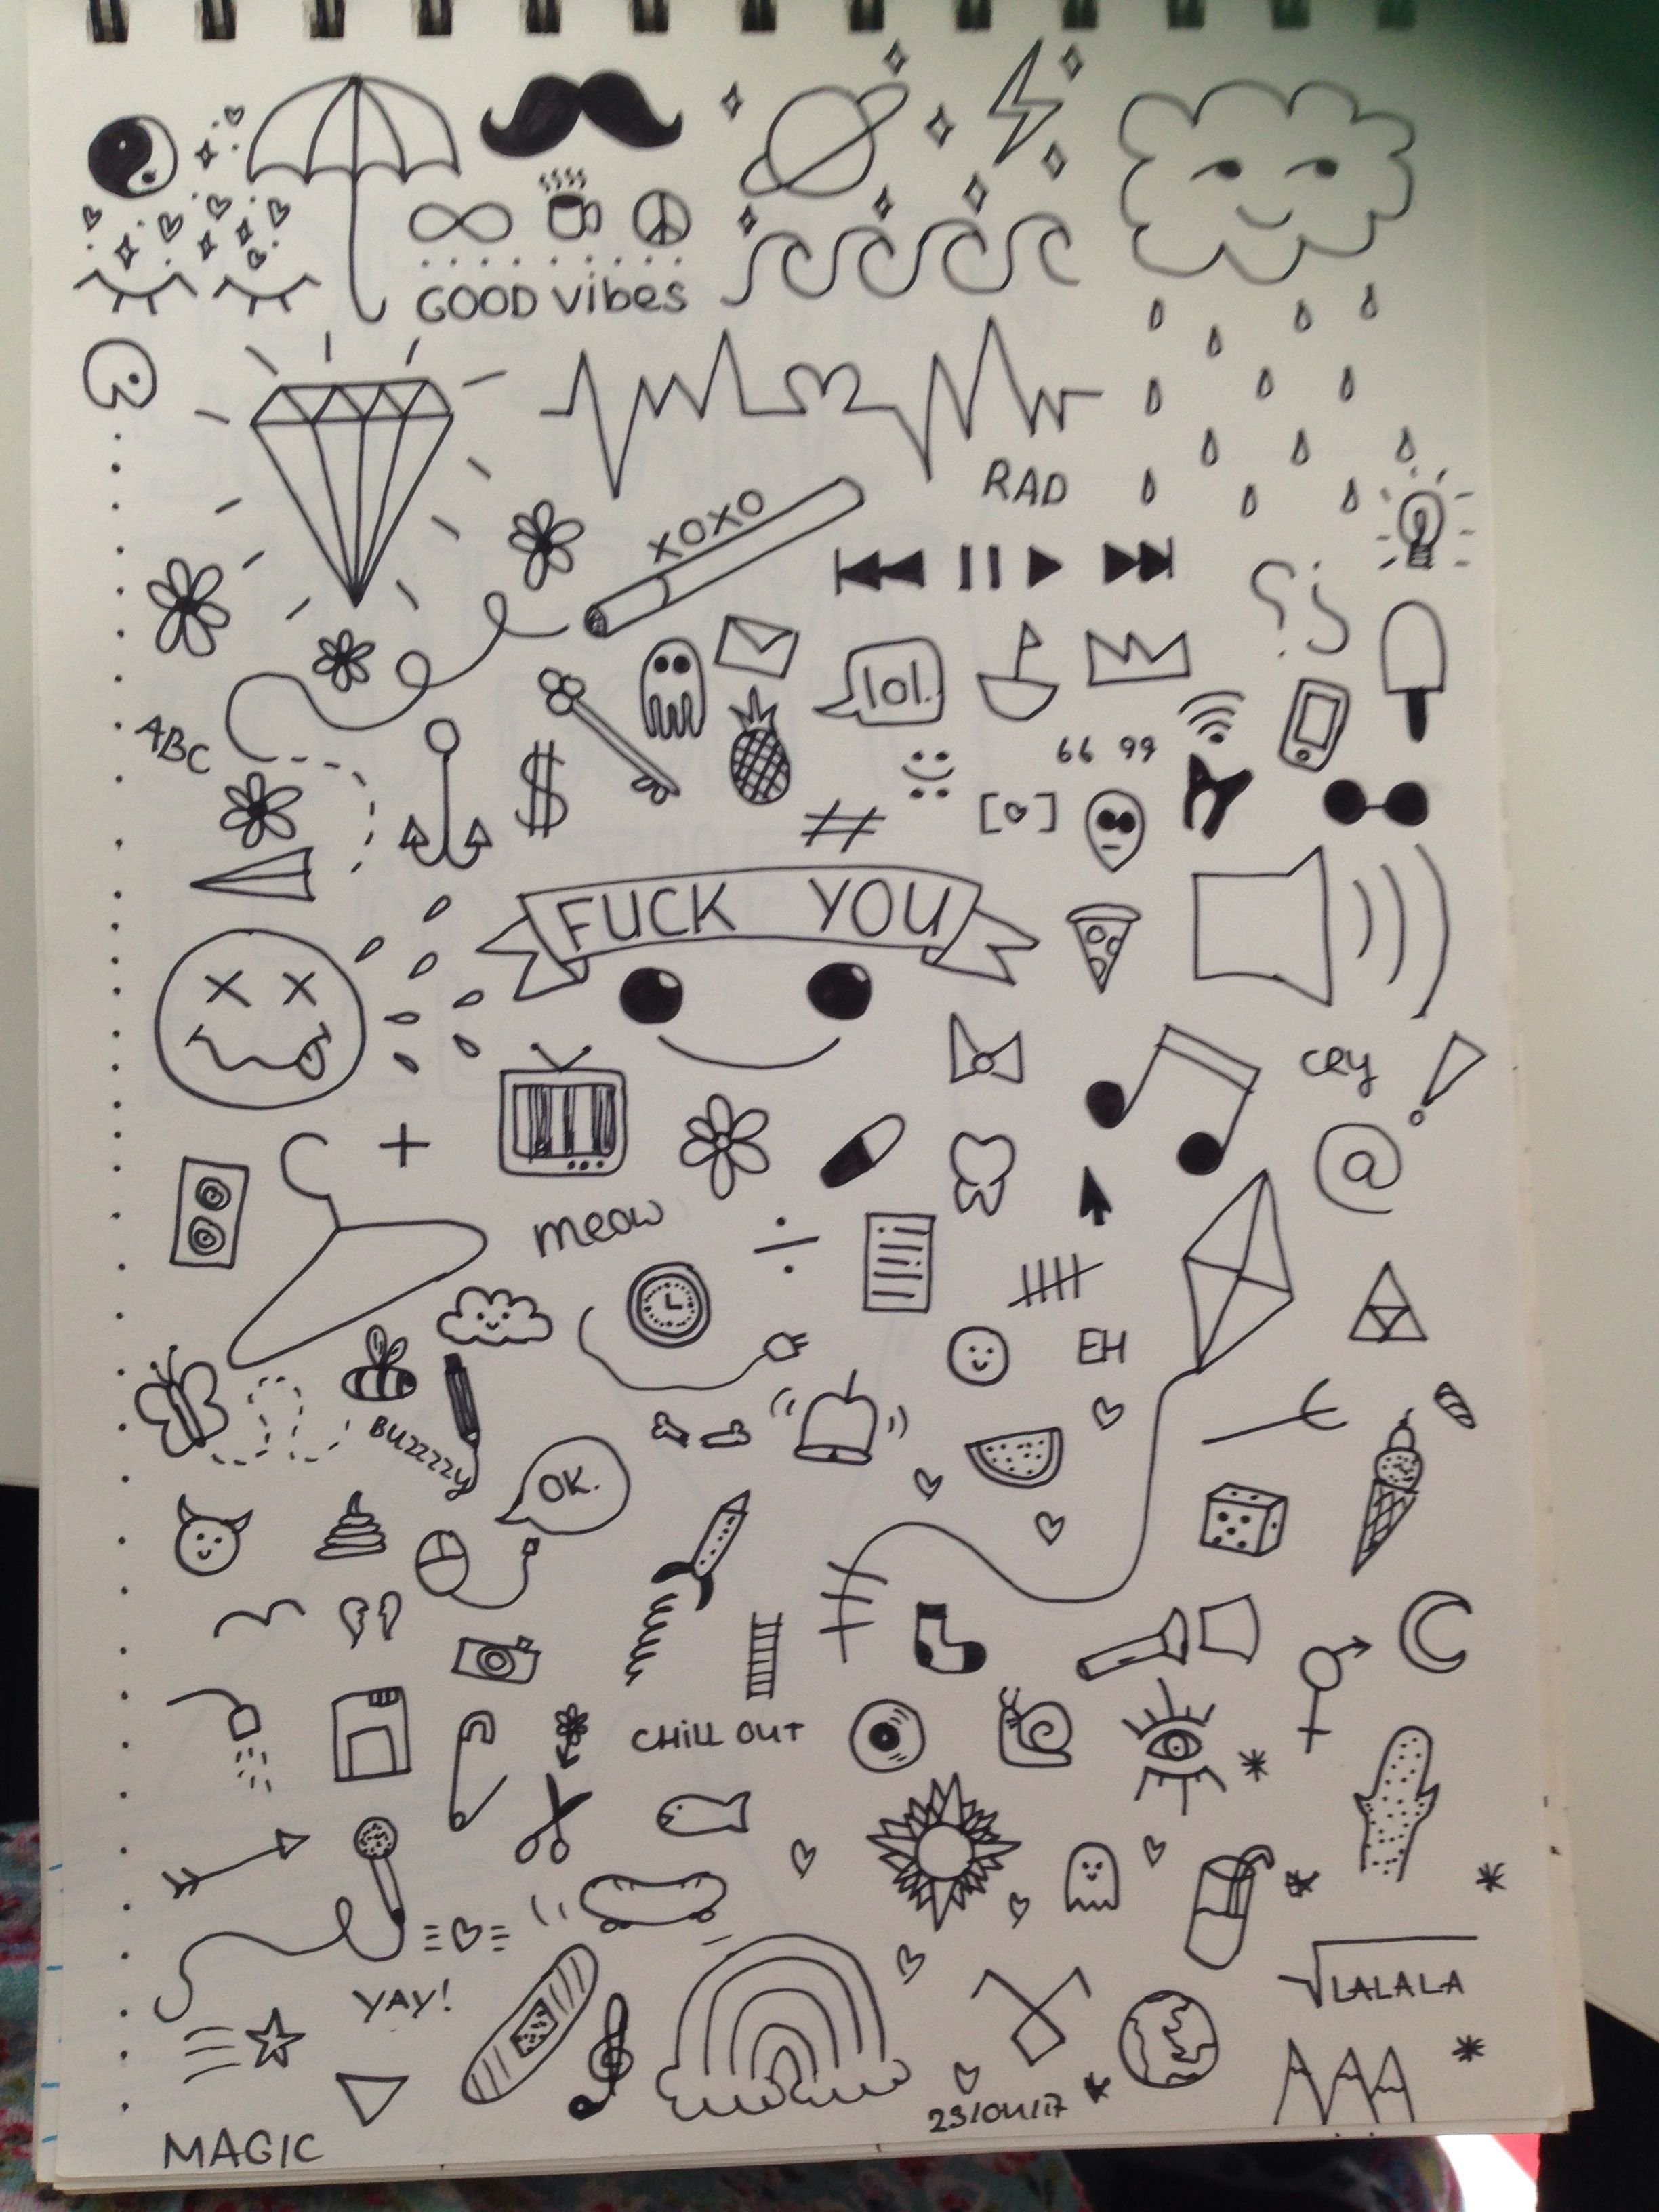 GOOD vibes
RAD
XOXO
lol.
ABC
$
66 99
#
[♡]
FUCK YOU
CRY
!
+
@
meow
÷
EH
BUZZZZY
OK.
CHiLL OUT
YAY!
√LALALA
23/04/17
MAGIC